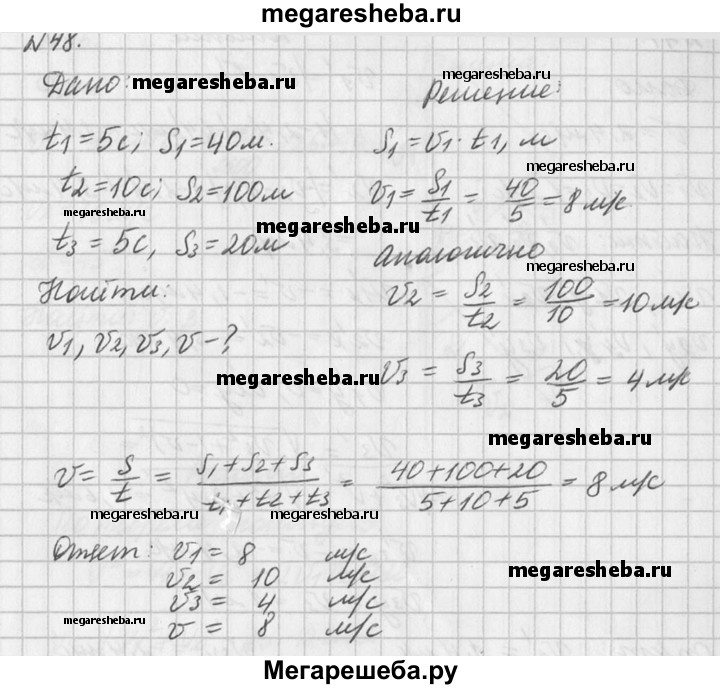 megaresheba.ru
N48.
Дано: megaresheba.ru
megaresheba.ru
Решение:
t1=5с; S1=40м.
S1=V1·t1, м
megaresheba.ru
t2=10с; S2=100м
V1= S1/t1 = 40/5 =8 м/с
megaresheba.ru
megaresheba.ru
t3=5с, S3=20м
Аналогично
megaresheba.ru
Найти:
V2 = S2/t2 = 100/10 =10 м/с
V1, V2, V3, V-?
megaresheba.ru
V3 = S3/t3 = 20/5 = 4 м/с
megaresheba.ru
V= S/t = S1+S2+S3/t1+t2+t3 = 40+100+20/5+10+5 = 8 м/с
megaresheba.ru
megaresheba.ru
Ответ: V1= 8 м/с
V2= 10 м/с
megaresheba.ru
V3= 4 м/с
megaresheba.ru
V= 8 м/с
Мегарешеба.ру